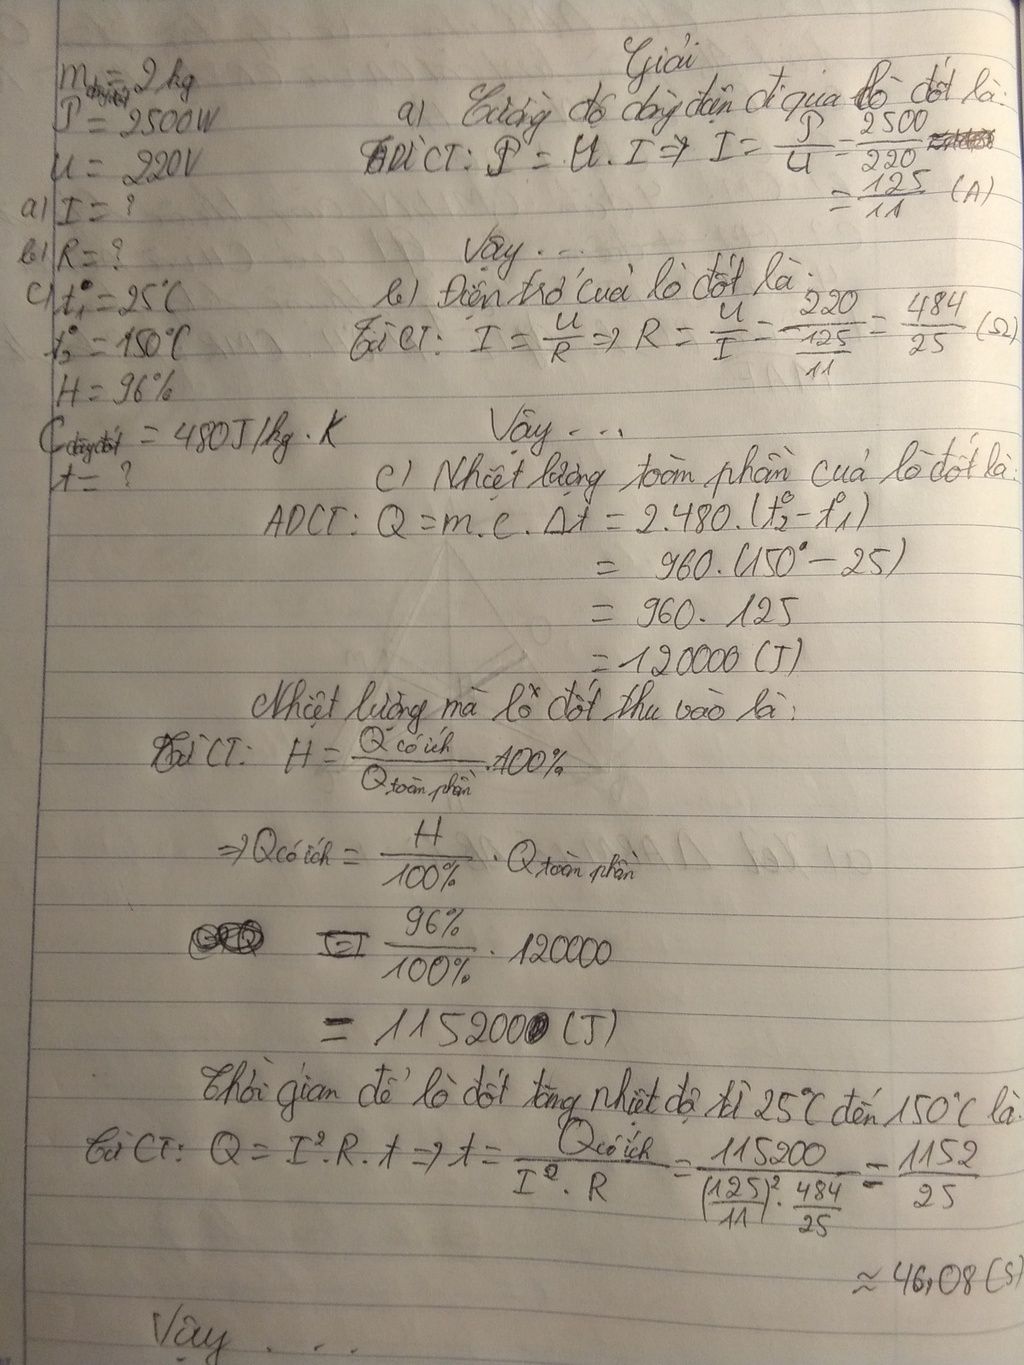 m dây đốt = 2 kg
P = 2500W
U = 220V
a) I = ?
b) R = ?
c) t°1 = 25°C
t°2 = 150°C
H = 96%
C dây đốt = 480J/kg.K
t = ?
Giải
a) Cường độ dòng điện đi qua lò đốt là:
ADCT: P = U.I => I = P/U = 2500/220
= 125/11 (A)
Vậy ...
b) Điện trở của lò đốt là:
Từ CT: I = U/R => R = U/I = 220/(125/11) = 484/25 (Ω)
Vậy ...
c) Nhiệt lượng toàn phần của lò đốt là:
ADCT: Q = m.c.Δt = 2.480.(t°2 - t°1)
= 960.(150° - 25)
= 960. 125
= 120000 (J)
Nhiệt lượng mà lò đốt thu vào là:
Từ CT: H = Q có ích/Q toàn phần .100%
=> Q có ích = H/100% . Q toàn phần
= 96%/100% . 120000
= 115200 (J)
Thời gian để lò đốt tăng nhiệt độ từ 25°C đến 150°C là:
Từ CT: Q = I².R.t => t = Q có ích/I².R = 115200/(125/11)².484/25 = 1152/25
≈ 46,08 (s)
Vậy ....